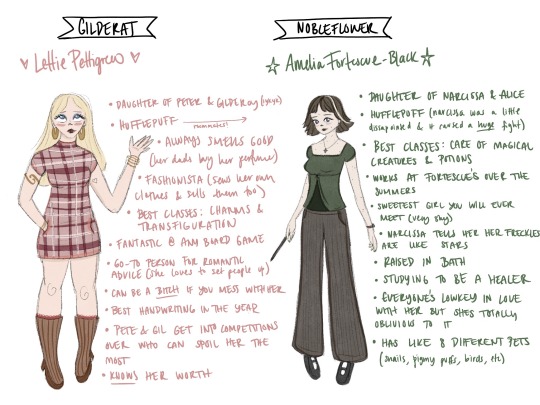 GILDERAT
♡ Lettie Pettigrew ♡
• DAUGHTER OF PETER & GILDEROY
• HUFFLEPUFF
roommates!
• ALWAYS SMELLS GOOD
(her dads buy her perfume)
• FASHIONISTA (sews her own
clothes & sells them too)
• BEST CLASSES: CHARMS &
TRANSFIGURATION
• FANTASTIC @ ANY BOARD GAME
• GO-TO PERSON FOR ROMANTIC
ADVICE (she loves to set people up)
• CAN BE A BITCH IF YOU MESS WITH HER
• BEST HANDWRITING IN THE YEAR
• PETE & GIL GET INTO COMPETITIONS
OVER WHO CAN SPOIL HER THE
MOST
• KNOWS HER WORTH
NOBLEFLOWER
☆ Amelia Fortescue-Black ☆
• DAUGHTER OF NARCISSA & ALICE
• HUFFLEPUFF (narcissa was a little
dissapointed & it caused a huge fight)
• BEST CLASSES: CARE OF MAGICAL
CREATURES & POTIONS
• WORKS AT FORTESCUE'S OVER THE
SUMMERS
• SWEETEST GIRL YOU WILL EVER
MEET (very shy)
• NARCISSA TELLS HER HER FRECKLES
ARE LIKE STARS
• RAISED IN BATH
• STUDYING TO BE A HEALER
• EVERYONE'S LOWKEY IN LOVE
WITH HER BUT SHES TOTALLY
OBLIVIOUS TO IT
• HAS LIKE 8 DIFFERENT PETS
(snails, pigmy puffs, birds, etc)